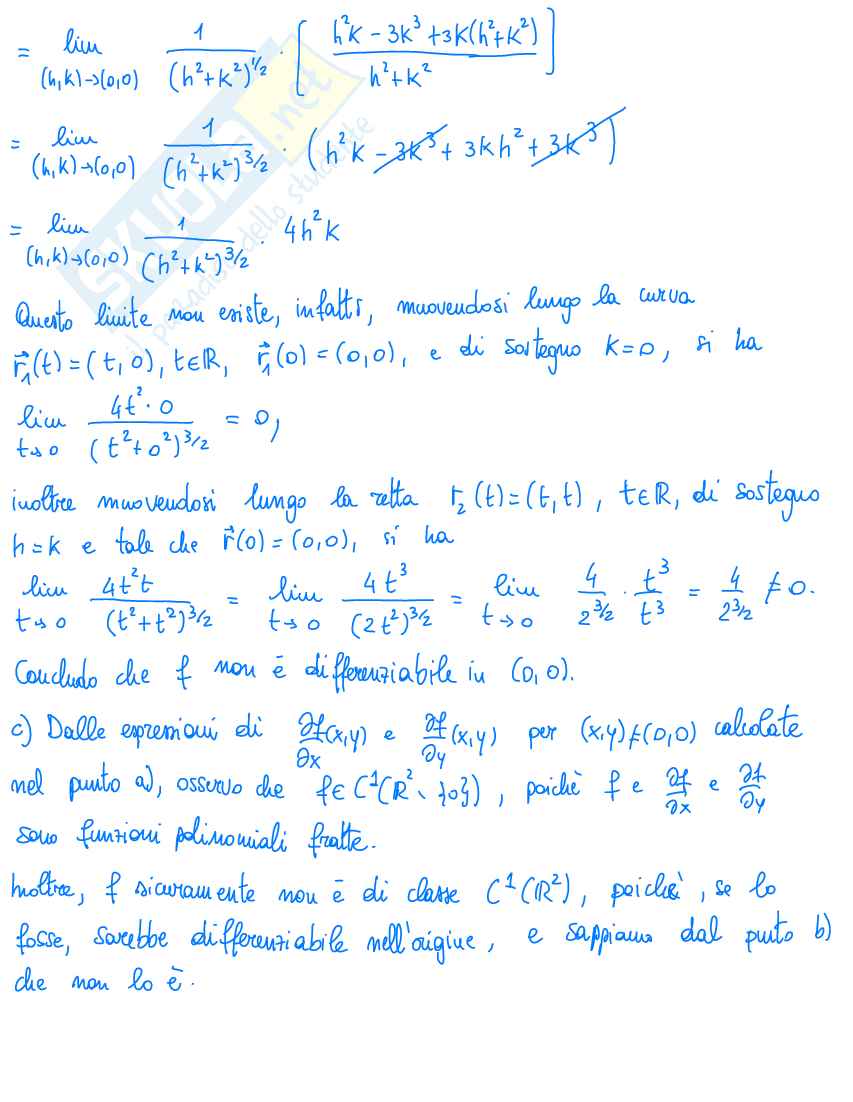 = lim_{(h,k)→(0,0)} 1/(h²+k²)^{1/2} · [ (h²k - 3k³ + 3k(h²+k²)) / (h²+k²) ]
= lim_{(h,k)→(0,0)} 1/(h²+k²)^{3/2} · (h²k - 3k³ + 3kh² + 3k³)
= lim_{(h,k)→(0,0)} 1/(h²+k²)^{3/2} · 4h²k
Questo limite non esiste, infatti, muovendosi lungo la curva
r⃗₁(t) = (t, 0), t∈ℝ, r⃗₁(0) = (0,0), e di sostegno k=0, si ha
lim_{t→0} 4t²·0/(t²+0²)^{3/2} = 0,
inoltre muovendosi lungo la retta r₂(t) = (t,t), t∈ℝ, di sostegno
h=k e tale che r⃗(0) = (0,0), si ha
lim_{t→0} 4t²t/(t²+t²)^{3/2} = lim_{t→0} 4t³/(2t²)^{3/2} = lim_{t→0} 4/2^{3/2} · t³/t³ = 4/2^{3/2} ≠ 0.
Concludo che f non è differenziabile in (0,0).
c) Dalle espressioni di ∂f/∂x(x,y) e ∂f/∂y(x,y) per (x,y)≠(0,0) calcolate
nel punto a), osservo che f∈C¹(ℝ²∖{0}), poichè f e ∂f/∂x e ∂f/∂y
sono funzioni polinomiali fratte.
Inoltre, f sicuramente non è di classe C¹(ℝ²), poichè, se lo
fosse, sarebbe differenziabile nell'origine, e sappiamo dal punto b)
che non lo è.
SKUOLA.net
il paradiso dello studente